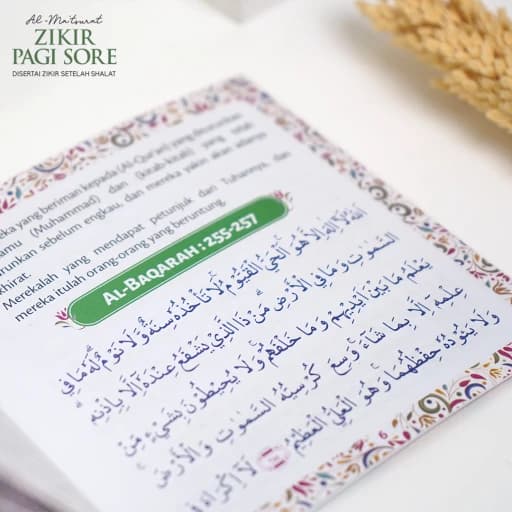 Al-Ma'tsurat
ZIKIR
PAGI SORE
DISERTAI ZIKIR SETELAH SHALAT
yang beriman kepada (Al-Qur'an) yang diturunkan
(Muhammad) dan (kitab-kitab) yang telah
sebelum engkau, dan mereka yakin akan adanya
Merekalah yang mendapat petunjuk dari Tuhannya, dan
mereka itulah orang-orang yang beruntung.
AL-BAQARAH : 255-257
اَللّٰهُ لَآ اِلٰهَ اِلَّا هُوَ الْحَيُّ الْقَيُّوْمُ لَا تَأْخُذُهٗ سِنَةٌ وَّلَا نَوْمٌ لَهٗ مَا فِى
السَّمٰوٰتِ وَمَا فِى الْاَرْضِ مَنْ ذَا الَّذِيْ يَشْفَعُ عِنْدَهٗٓ اِلَّا بِاِذْنِهٖ
يَعْلَمُ مَا بَيْنَ اَيْدِيْهِمْ وَمَا خَلْفَهُمْ وَلَا يُحِيْطُوْنَ بِشَيْءٍ مِّنْ
عِلْمِهٖٓ اِلَّا بِمَا شَاءَ وَسِعَ كُرْسِيُّهُ السَّمٰوٰتِ وَالْاَرْضَ
وَلَا يَـُٔوْدُهٗ حِفْظُهُمَا وَهُوَ الْعَلِيُّ الْعَظِيْمُ لَآ اِكْرَاهَ
6